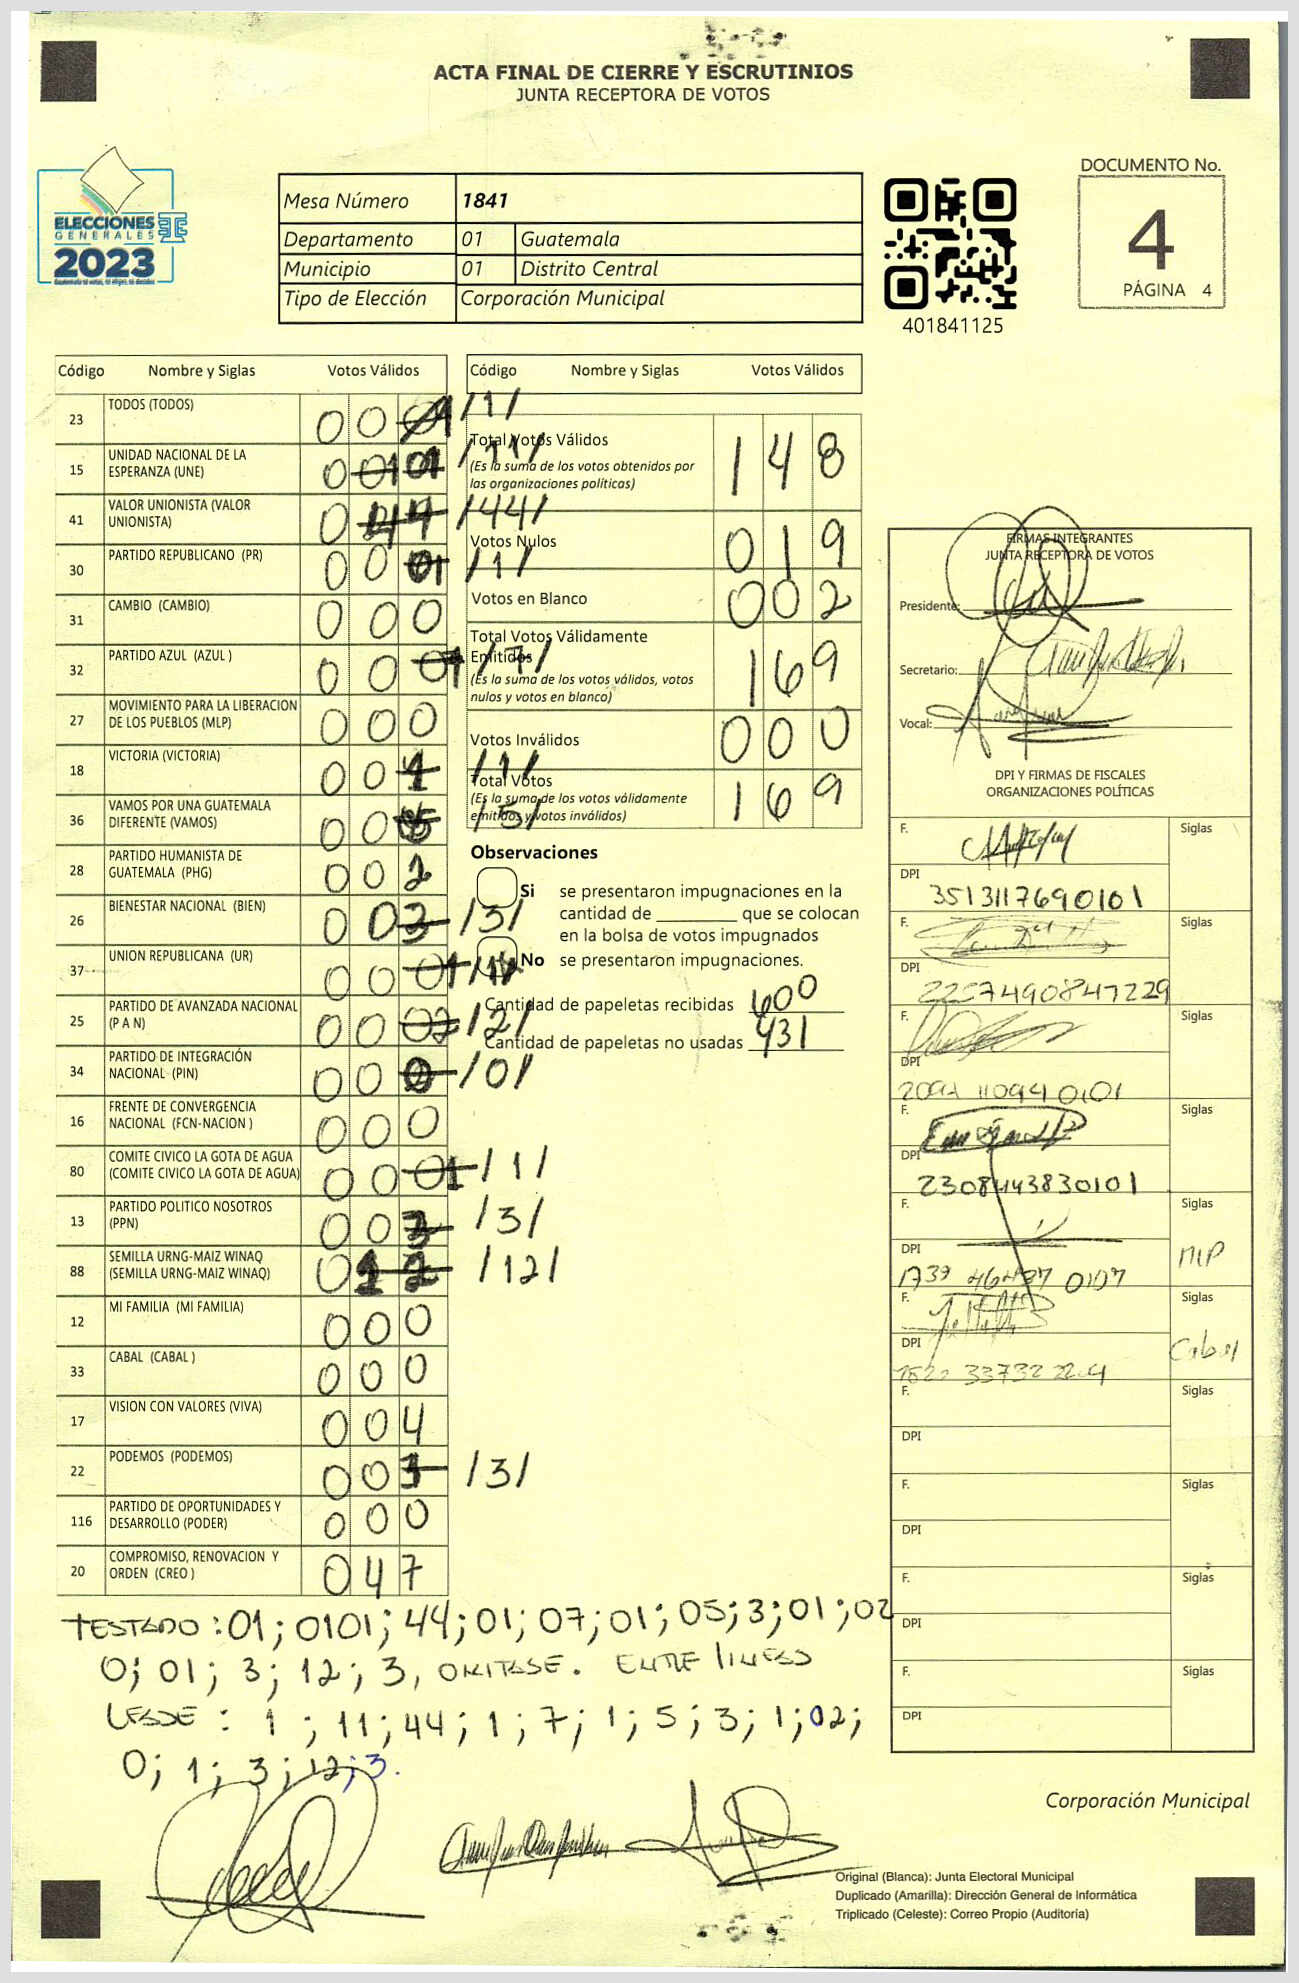 ACTA FINAL DE CIERRE Y ESCRUTINIOS
JUNTA RECEPTORA DE VOTOS
ELECCIONES
GENERALES
2023
Mesa Número 1841
Departamento 01 Guatemala
Municipio 01 Distrito Central
Tipo de Elección Corporación Municipal
401841125
DOCUMENTO No.
4
PÁGINA 4
Código Nombre y Siglas Votos Válidos
23 TODOS (TODOS) 0 0 /1/
15 UNIDAD NACIONAL DE LA ESPERANZA (UNE) 0 01 01 /11/
41 VALOR UNIONISTA (VALOR UNIONISTA) 0 4 4 /44/
30 PARTIDO REPUBLICANO (PR) 0 0 01 /1/
31 CAMBIO (CAMBIO) 0 0 0
32 PARTIDO AZUL (AZUL ) 0 0 07 /7/
27 MOVIMIENTO PARA LA LIBERACION DE LOS PUEBLOS (MLP) 0 0 0
18 VICTORIA (VICTORIA) 0 0 1 /1/
36 VAMOS POR UNA GUATEMALA DIFERENTE (VAMOS) 0 0 /5/
28 PARTIDO HUMANISTA DE GUATEMALA (PHG) 0 0 2
26 BIENESTAR NACIONAL (BIEN) 0 0 3 /3/
37 UNION REPUBLICANA (UR) 0 0 01
25 PARTIDO DE AVANZADA NACIONAL (P A N) 0 0 02 /2/
34 PARTIDO DE INTEGRACIÓN NACIONAL (PIN) 0 0 0 /0/
16 FRENTE DE CONVERGENCIA NACIONAL (FCN-NACION ) 0 0 0
80 COMITE CIVICO LA GOTA DE AGUA (COMITE CIVICO LA GOTA DE AGUA) 0 0 01 /1/
13 PARTIDO POLITICO NOSOTROS (PPN) 0 0 3 /3/
88 SEMILLA URNG-MAIZ WINAQ (SEMILLA URNG-MAIZ WINAQ) 0 1 2 /12/
12 MI FAMILIA (MI FAMILIA) 0 0 0
33 CABAL (CABAL ) 0 0 0
17 VISION CON VALORES (VIVA) 0 0 4
22 PODEMOS (PODEMOS) 0 0 3 /3/
116 PARTIDO DE OPORTUNIDADES Y DESARROLLO (PODER) 0 0 0
20 COMPROMISO, RENOVACION Y ORDEN (CREO ) 0 4 7
Código Nombre y Siglas Votos Válidos
Total Votos Válidos 1 4 8
(Es la suma de los votos obtenidos por
las organizaciones políticas)
Votos Nulos 0 1 9
Votos en Blanco 0 0 2
Total Votos Válidamente
Emitidos 1 6 9
(Es la suma de los votos válidos, votos
nulos y votos en blanco)
Votos Inválidos 0 0 0
Total Votos 1 6 9
(Es la suma de los votos válidamente
emitidos y votos inválidos)
Observaciones
Si se presentaron impugnaciones en la
cantidad de ________ que se colocan
en la bolsa de votos impugnados
No se presentaron impugnaciones.
Cantidad de papeletas recibidas 600
Cantidad de papeletas no usadas 431
FIRMAS INTEGRANTES
JUNTA RECEPTORA DE VOTOS
Presidente:
Secretario:
Vocal:
DPI Y FIRMAS DE FISCALES
ORGANIZACIONES POLÍTICAS
F. Siglas
DPI 3513117690101
F. Siglas
DPI 2227490847229
F. Siglas
DPI
F. Siglas
DPI 2308443830101
F. Siglas
DPI MLP
F. Siglas
DPI Cabal
F. Siglas
DPI
F. Siglas
DPI
F. Siglas
DPI
F. Siglas
DPI
TESTADO : 01; 0101; 44; 01; 07; 01; 05; 3; 01; 02
0; 01; 3; 12; 3, OMITASE. ENTRE LINEAS
LEASE : 1 ; 11; 44; 1; 7; 1; 5; 3; 1; 02;
0; 1; 3; 12; 3.
Corporación Municipal
Original (Blanca): Junta Electoral Municipal
Duplicado (Amarilla): Dirección General de Informática
Triplicado (Celeste): Correo Propio (Auditoría)